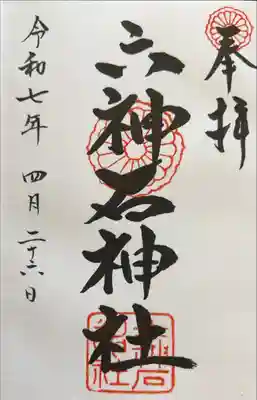 奉拝
六神石神社
令和七年 四月二十六日